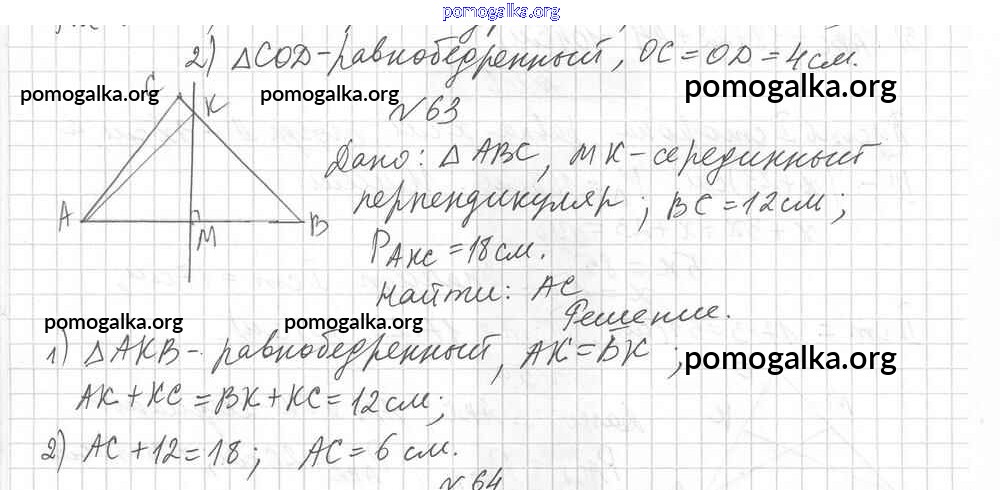 pomogalka.org
2) △COD - равнобедренный, OC = OD = 4 см.
pomogalka.org pomogalka.org pomogalka.org
№ 63
C
K
A
M
B
Дано: △ABC, MK - серединный
перпендикуляр; BC = 12 см;
P AKC = 18 см.
Найти: AC
Решение.
pomogalka.org pomogalka.org
1) △AKB - равнобедренный, AK = BK;
pomogalka.org
AK + KC = BK + KC = 12 см;
2) AC + 12 = 18; AC = 6 см.
№ 64